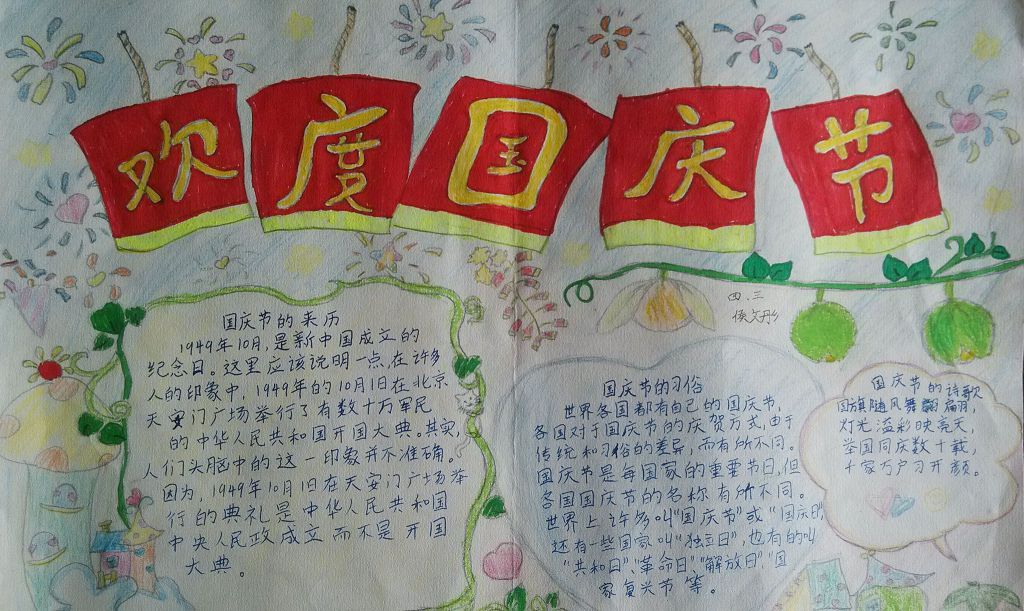 欢度国庆节
四.三
侯文彤
国庆节的来历
1949年10月,是新中国成立的
纪念日。这里应该说明一点,在许多
人的印象中,1949年的10月1日在北京
天安门广场举行了有数十万军民
的中华人民共和国开国大典。其实,
人们头脑中的这一印象并不准确。
因为,1949年10月1日在天安门广场举
行的典礼是中华人民共和国
中央人民政成立而不是开国
大典。
国庆节的习俗
世界各国都有自己的国庆节,
各国对于国庆节的庆贺方式,由于
传统和习俗的差异,而有所不同。
国庆节是每国家的重要节日,但
各国国庆节的名称有所不同。
世界上许多叫“国庆节”或“国庆日”,
还有一些国家叫“独立日”,也有的叫
“共和日”、“革命日”、“解放日”、“国
家复兴节等。
国庆节的诗歌
国旗随风舞翩翩,
灯光溢彩映亮天,
举国同庆数十载,
千家万户习开颜。